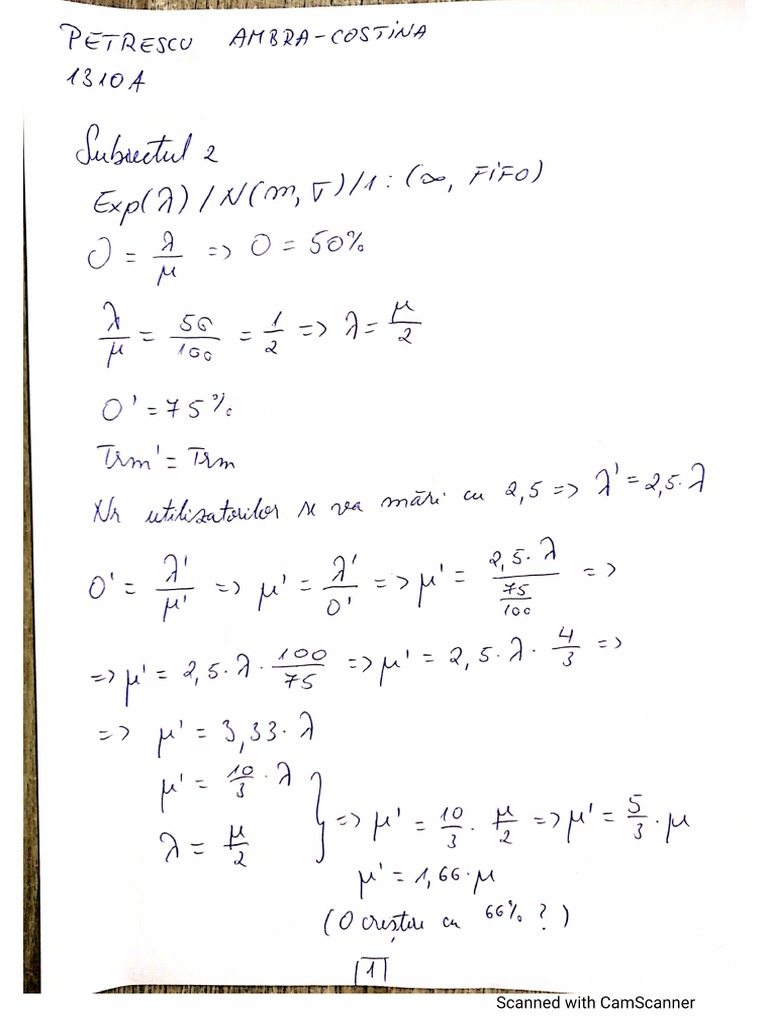 PETRESCU AMBRA-COSTINA
1310A
Subiectul 2
Exp(λ) / N(m, σ) / 1 : (∞, FIFO)
O = λ/μ => O = 50%
λ/μ = 50/100 = 1/2 => λ = μ/2
O' = 75%
Trm' = Trm
Nr utilizatorilor se va mări cu 2,5 => λ' = 2,5·λ
O' = λ'/μ' => μ' = λ'/O' => μ' = 2,5·λ/(75/100) =>
=> μ' = 2,5·λ·100/75 => μ' = 2,5·λ·4/3 =>
=> μ' = 3,33·λ
μ' = 10/3·λ
λ = μ/2 } => μ' = 10/3·μ/2 => μ' = 5/3·μ
μ' = 1,66·μ
(O creștere cu 66% ?)
1
Scanned with CamScanner